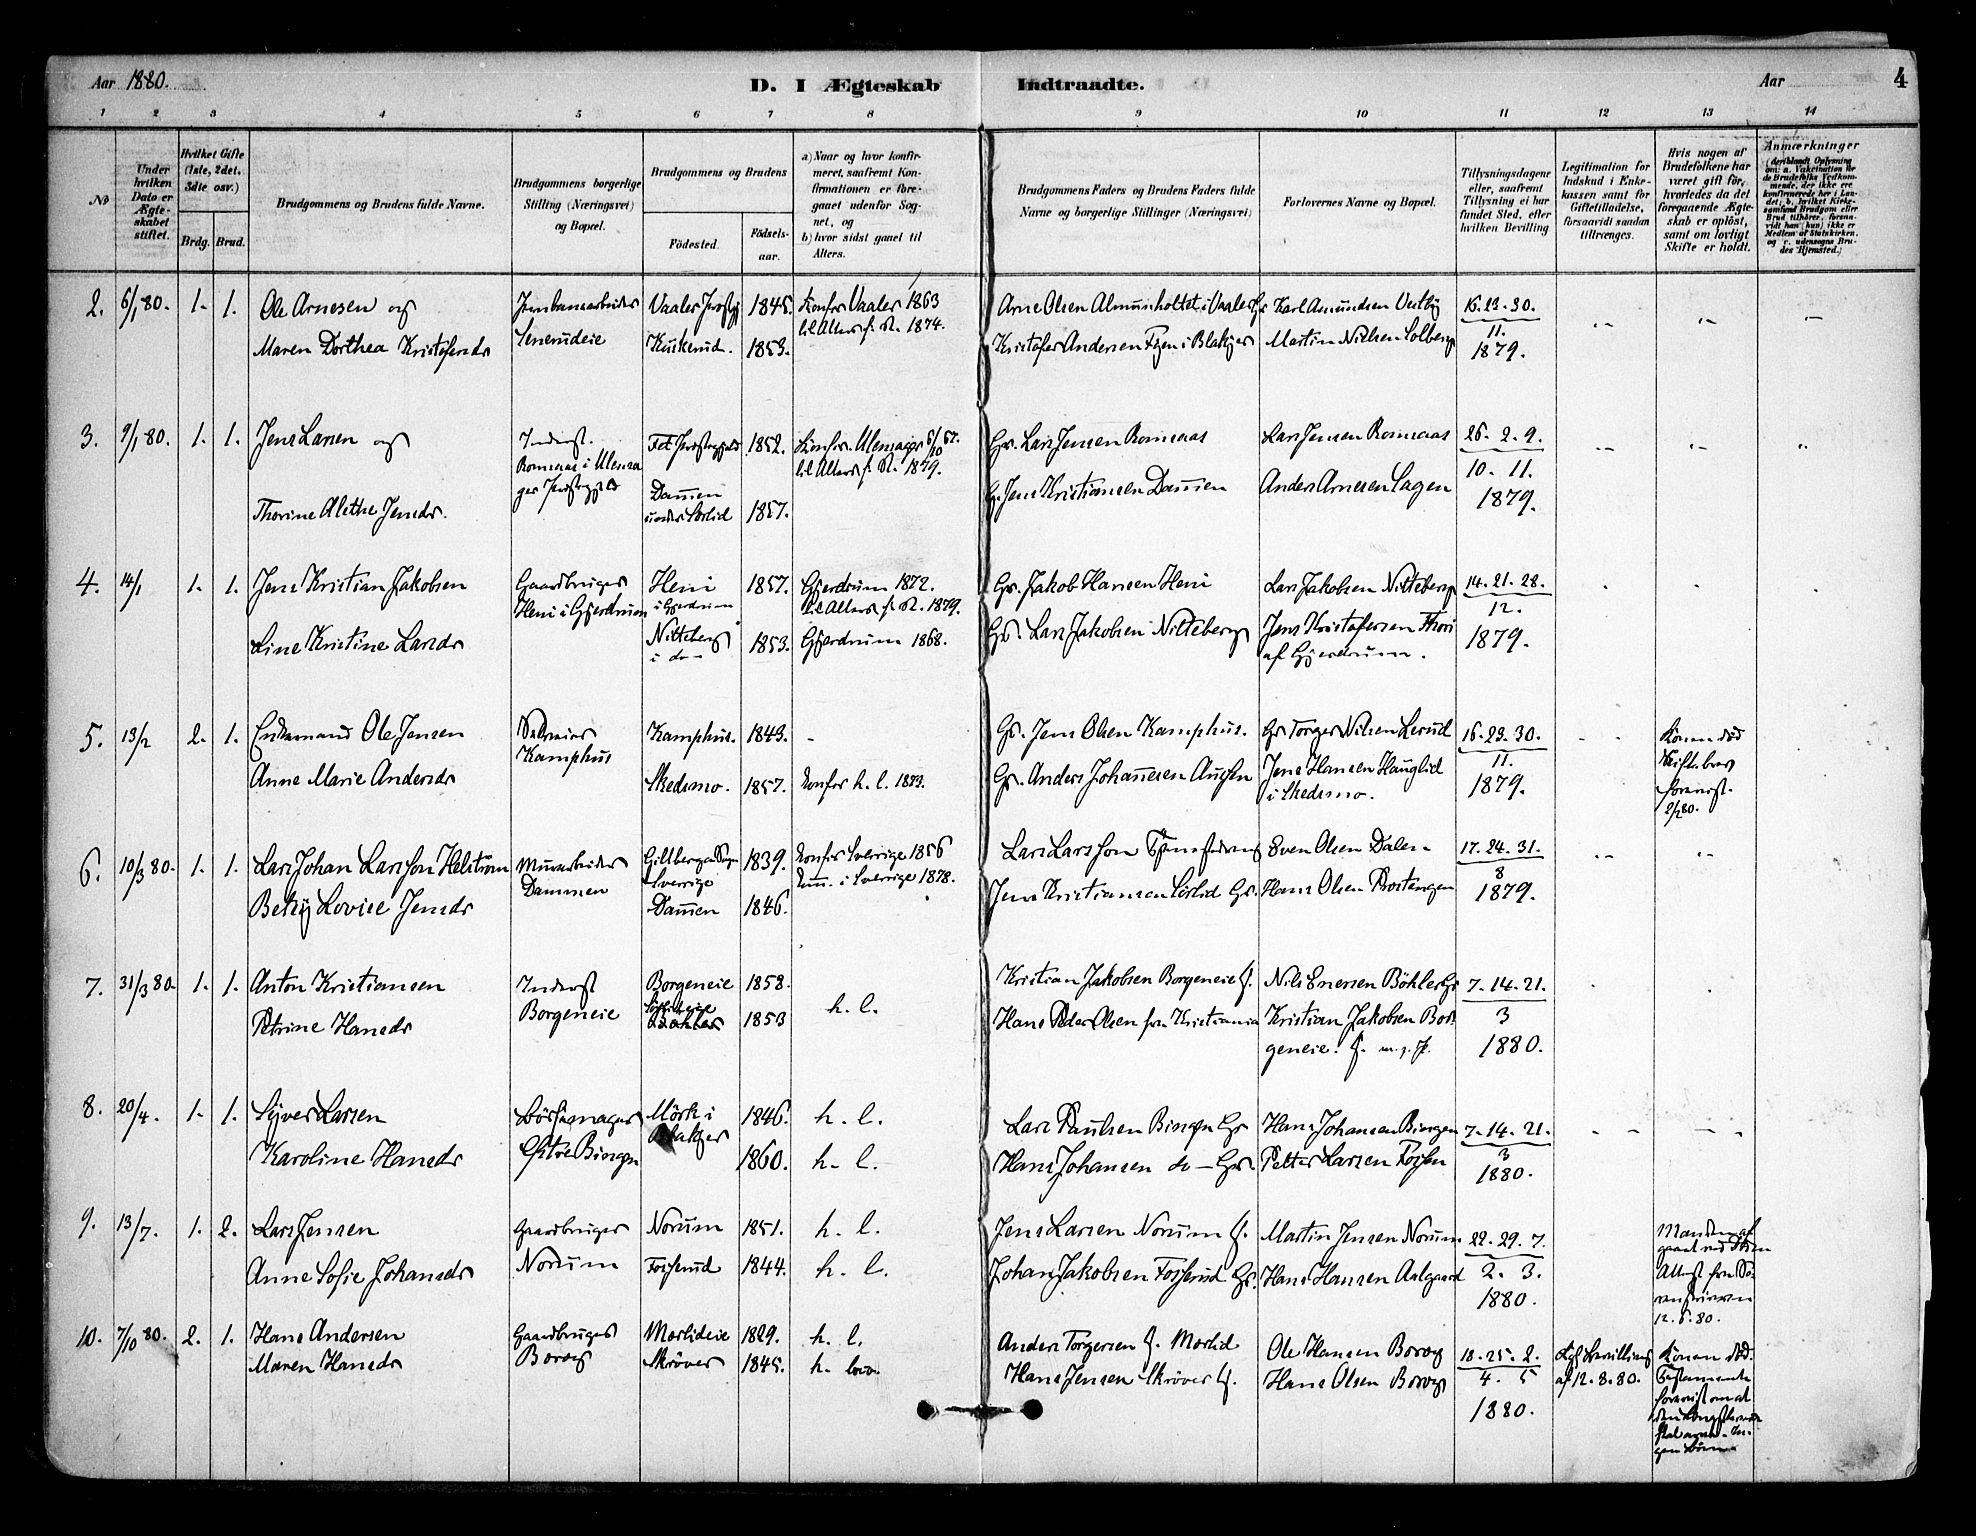 Aar 1880.
D. I Ægteskab Indtraadte.
Aar
4
1 2 3 4 5 6 7 8 9 10 11 12 13 14
No
Under hvilken Dato er Ægteskabet stiftet.
Hvilket Gifte (1ste, 2det, 3die osv.)
Brdg. Brud.
Brudgommens og Brudens fulde Navne.
Brudgommens borgerlige Stilling (Næringsvei) og Bopæl.
Brudgommens og Brudens
Födested.
Födselsaar.
a) Naar og hvor konfirmeret, saafremt Konfirmationen er foregaaet udenfor Sognet, og
b) hvor sidst gaaet til Alters.
Brudgommens Faders og Brudens Faders fulde Navne og borgerlige Stillinger (Næringsvei)
Forlovernes Navne og Bopæl.
Tillysningsdagene eller, saafremt Tillysning ei har fundet Sted, efter hvilken Bevilling
Legitimation for Indskud i Enkekassen samt for Giftetilladelse, forsaavidt saadan tiltrænges.
Hvis nogen af Brudefolkene har været gift för, hvorledes da det foregaaende Ægteskab er oplöst, samt om lovligt Skifte er holdt.
Anmærkninger
2. 6/1 80. 1. 1. Ole Arnesen og Jernbanearbeider Vaaler Præstgj 1845. Konfir. Vaaler 1863
til Alters f. N. 1874.
Arne Olsen Almunholtet i Vaaler Gr. Karl Amundsen Vestby 16. 23. 30.
Maren Dorthea Kristofersdr Seneruudeie Kuskerud. 1853.
Kristofer Andersen Fgen i Blakjer Martin Nielsen Solberg 11.
1879.
3. 9/1 80. 1. 1. Jens Larsen og Inderst. Fet Præstegjeld 1852. Konfir. Ulensager 6/10 67.
Romsaas i Ulensager Præstegjeld til Alters f. N. 1879.
Gr. Lars Jensen Romsaas Lars Jensen Romsaas 26. 2. 9.
10. 11.
Thorine Alethe Jensdr. Dammen under Sörlid 1857.
G. Jens Kristiansen Dammen Anders Arnesen Hagen 1879.
4. 14/1 1. 1. Jens Kristian Jakobsen Gaardbruger Heni 1857. Gjerdrum 1872.
Heni i Gjerdrum i Gjerdrum til Alters f. N. 1879.
Gr. Jakob Hansen Heni Lars Jakobsen Nitteberg 14. 21. 28.
12.
Line Kristine Larsdr Nitteberg i do - 1853. Gjerdrum 1868.
Gr. Lars Jakobsen Nitteberg Jens Kristofersen Thori 1879.
af Gjerdrum.
5. 13/2 2. 1. Enkemand Ole Jensen Selveier Kamphus. 1843. -
Kamphus
Gr. Jens Olsen Kamphus. Gr Torger Nilsen Lerud 16. 23. 30.
11.
Anne Marie Andersdr Skedsmo. 1857. Konfir h. l. 1873.
Gr. Anders Johannesen Jens Hansen Hauglid 1879.
i Skedsmo.
Konen död
Skiftebrev
forevist.
2/2 80.
6. 10/3 80. 1. 1. Lars Johan Larsson Helström Muurarbeider Sverige 1839. Konfir Sverrige 1856
Dammen Kom. i Sverrige 1878.
Lars Larsson Even Olsen Dalen 17. 24. 31.
8
Betsy Lovise Jensdr Dammen 1846.
Jens Kristiansen Sörlid Gr. Hans Olsen 1879.
7. 31/3 80. 1. 1. Anton Kristiansen Inderst Borgeneie 1858.
Borgeneie h. l.
Kristian Jakobsen Borgeneie Nils Enersen Böhler Gr 7. 14. 21.
3
Petrine Hansdr 1853
Hans Peder Olsen fra Kristiania Kristian Jakobsen Borgeneie. 1880.
8. 20/4. 1. 1. Syver Larsen Börsemager Mörk i 1846. h. l.
Östre Bingen Blakjer
Lars Paulsen Bingen Gr Hans Johansen Bingen 7. 14. 21.
3
Karoline Hansdr 1860. h. l.
Hans Johansen do - Gr. Petter Larsen Fossen 1880.
9. 13/7. 1. 2. Lars Jensen Gaardbruger Norum 1851. h. l.
Norum
Jens Larsen Norum Martin Jensen Norum 22. 29. 7.
Anne Sofie Johansdr Fosserud 1844. h. l.
Johan Jakobsen Fosserud Gr. Hans Hansen Aalgaard 2. 3.
1880.
Manden af
Attest fra
12. 6. 80.
10. 7/10 80. 2. 1. Hans Andersen Gaardbruger Morlideie 1829. h. l.
Borog
Anders Torgersen Morlid Ole Hansen Borog 18. 25. 2.
Maren Hansdr Skröver 1845. h. loco
Hans Jensen Skröver Hans Olsen Borog 4. 5
1880.
Kgl Bevilling
af 12. 8. 80.
Konen död.
Testamente
forevist om at
den længstlevende
skal arve. Ingen Börn